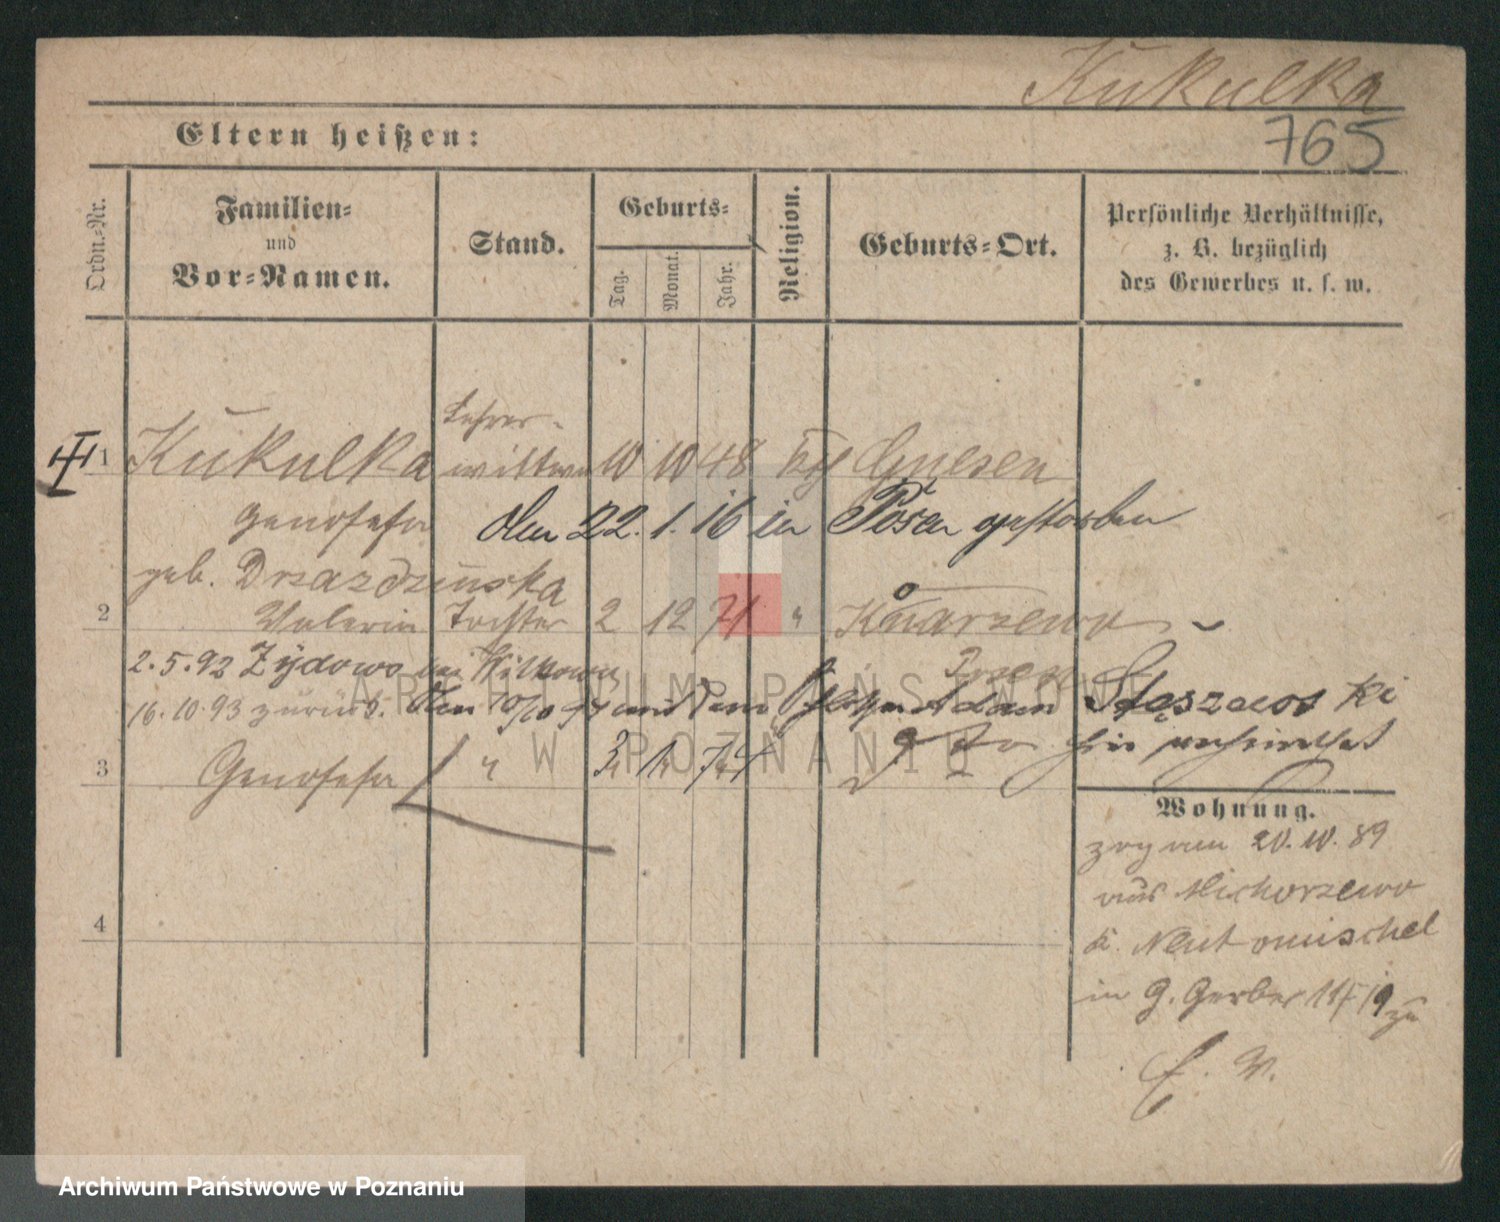 Kukulka
765
Eltern heißen:
Ordn.-Nr.
Familien- und Vor-Namen.
Stand.
Geburts-
Tag.
Monat.
Jahr.
Religion.
Geburts-Ort.
Persönliche Verhältnisse,
z. B. bezüglich
des Gewerbes u. s. w.
Lehrer-
1 Kukulka wittwe 10 10 48 kth Gnesen
Genofefa den 22. 1. 16 in Posen gestorben
geb. Drzazdzinska
2 Valeria Tochter 2 12 71 " Knarzewo
2.5.92 Zydowo bei Witkowo Posen
16.10.93 zurück. Den 10/10 94 mit dem Adam Staszewski
hier verheirathet
3 Genofefa " 3 1 74
Wohnung.
zog am 20.10.89
aus Michorzewo
K. Neutomischel
in G. Gerber 11 zu
E. W.
4
ARCHIWUM PAŃSTWOWE
W POZNANIU
Archiwum Państwowe w Poznaniu